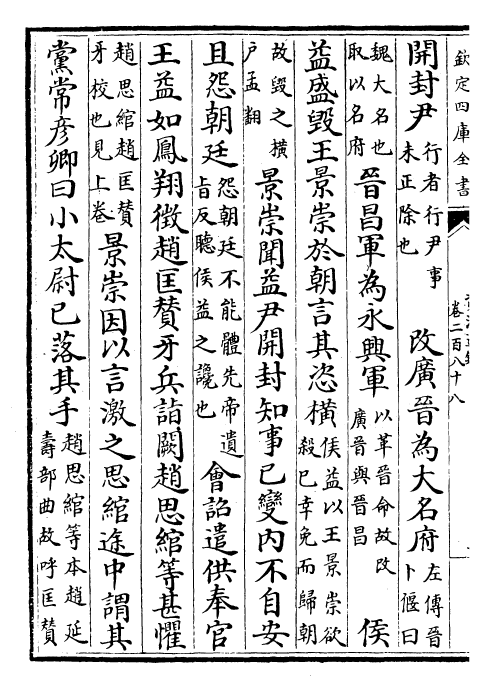 欽定四庫全書
卷二百八十八
開封尹行者行尹事未正除也改廣晉為大名府左傳晉卜偃曰
魏大名也取以名府晉昌軍為永興軍以革晉命故改廣晉與晉昌侯
益盛毀王景崇於朝言其恣橫侯益以王景崇欲殺巳幸免而歸朝
故毀之橫户孟翻景崇聞益尹開封知事已變內不自安
且怨朝廷怨朝廷不能體先帝遺旨反聽侯益之讒也會詔遣供奉官
王益如鳳翔徵趙匡贊牙兵詣闕趙思綰等甚懼
趙思綰趙匡贊牙校也見上卷景崇因以言激之思綰途中謂其
黨常彥卿曰小太尉已落其手趙思綰等本趙延壽部曲故呼匡贊